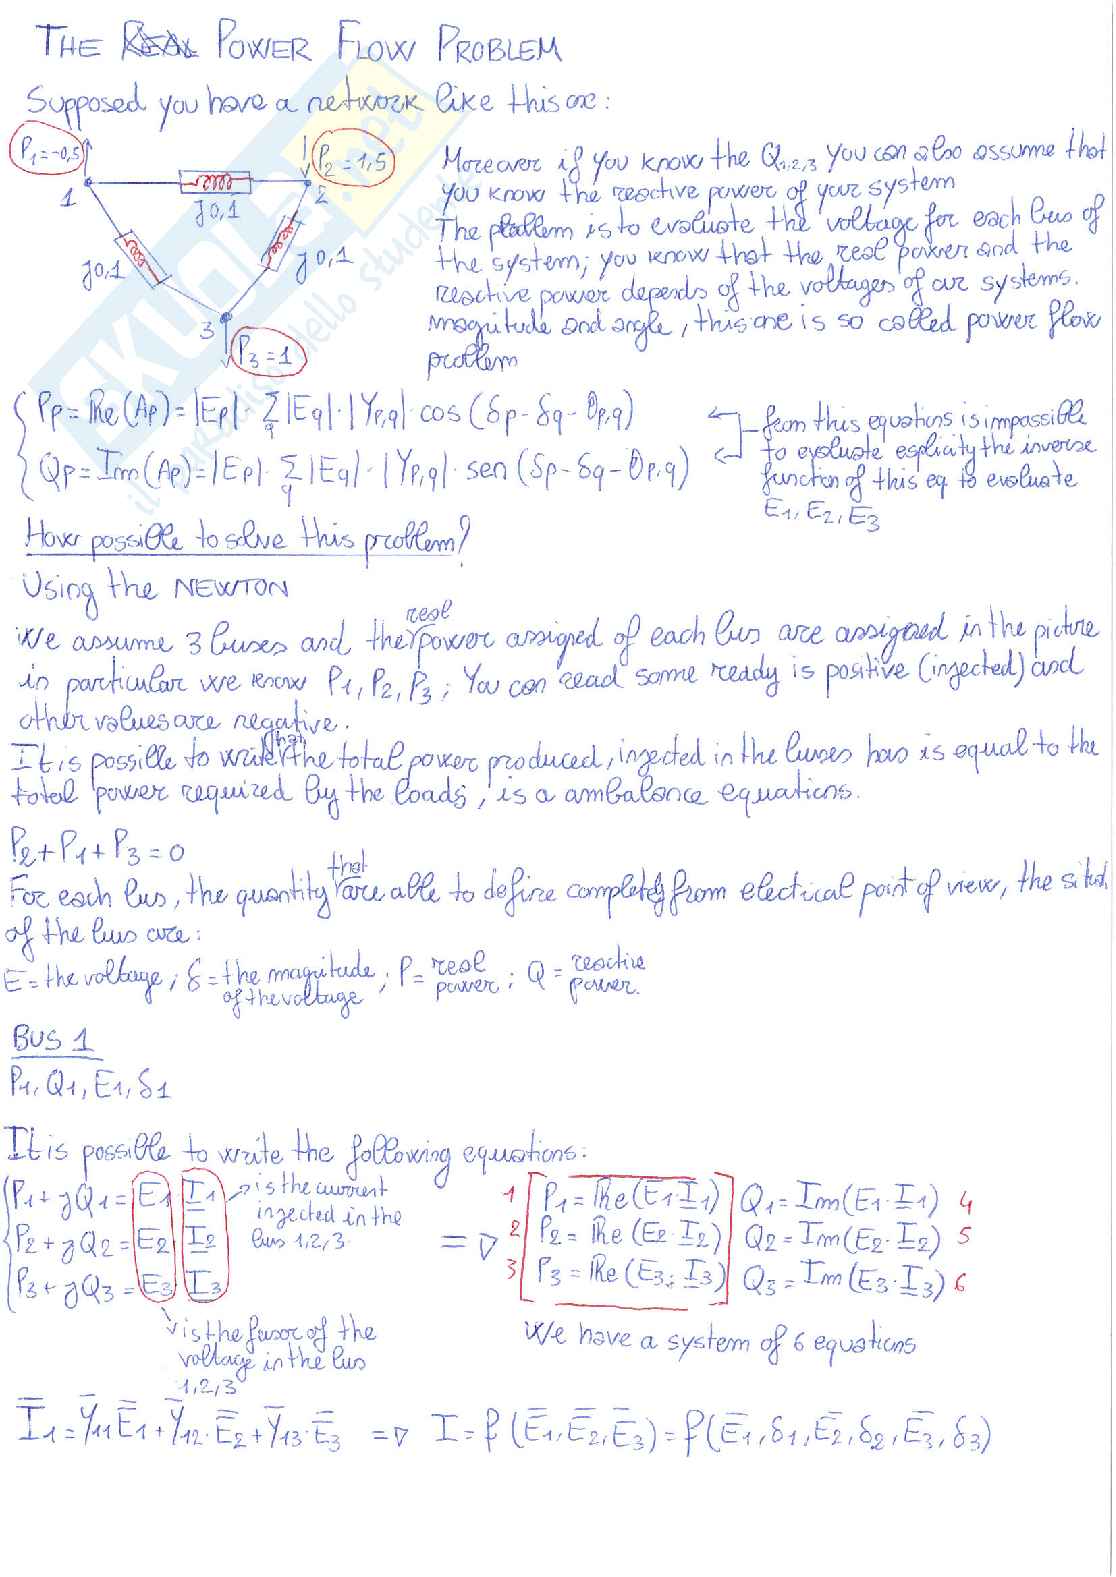 THE REAL POWER FLOW PROBLEM
Supposed you have a network like this one:
P1=-0,5
P2=1,5
1
2
j0,1
j0,1
j0,1
3
P3=1
Moreover if you know the Q1,2,3 you can also assume that
you know the reactive power of your system
The problem is to evaluate the voltage for each bus of
the system; you know that the real power and the
reactive power depends of the voltages of our systems.
magnitude and angle, this one is so called power flow
problem
Pp = Re(Ap) = |Ep| · Σq |Eq| · |Yp,q| · cos (δp - δq - θp,q)
Qp = Im(Ap) = |Ep| · Σq |Eq| · |Yp,q| · sen (δp - δq - θp,q)
from this equations is impossible
to evaluate esplicity the inverse
function of this eq to evaluate
E1, E2, E3
How possible to solve this problem?
Using the NEWTON
We assume 3 buses and the real power assigned of each bus are assigned in the picture
in particular we know P1, P2, P3; You can read some ready is positive (injected) and
other values are negative.
It is possible to write that the total power produced, injected in the buses has is equal to the
total power required by the loads, is a ambalance equations.
P2+P1+P3=0
For each bus, the quantity that are able to define completely from electrical point of view, the
of the bus are:
E = the voltage; δ = the magnitude of the voltage; P = real power; Q = reactive power.
BUS 1
P1, Q1, E1, δ1
It is possible to write the following equations:
P1 + jQ1 = E1 I1
P2 + jQ2 = E2 I2
P3 + jQ3 = E3 I3
is the current
injected in the
bus 1,2,3
is the fasor of the
voltage in the bus
1,2,3
=>
1 P1 = Re(E1·I1) Q1 = Im(E1·I1) 4
2 P2 = Re(E2·I2) Q2 = Im(E2·I2) 5
3 P3 = Re(E3·I3) Q3 = Im(E3·I3) 6
We have a system of 6 equations
I̅1 = Y̅11 E̅1 + Y̅12 · E̅2 + Y̅13 · E̅3 => I = f (E̅1, E̅2, E̅3) = f(E̅1, δ1, E̅2, δ2, E̅3, δ3)